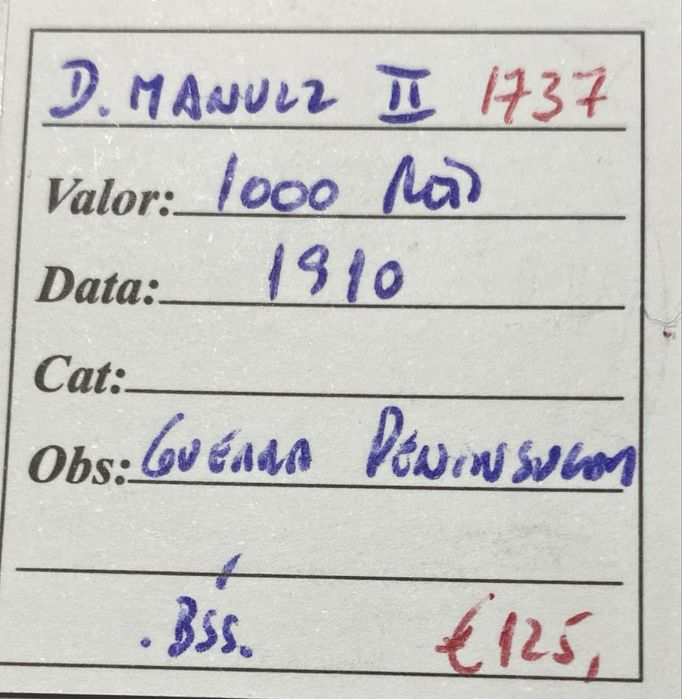 D. MANUEL II 1737
Valor: 1000 Réis
Data: 1910
Cat:
Obs: GUERRA PENINSULAR
.BSS.
€125,